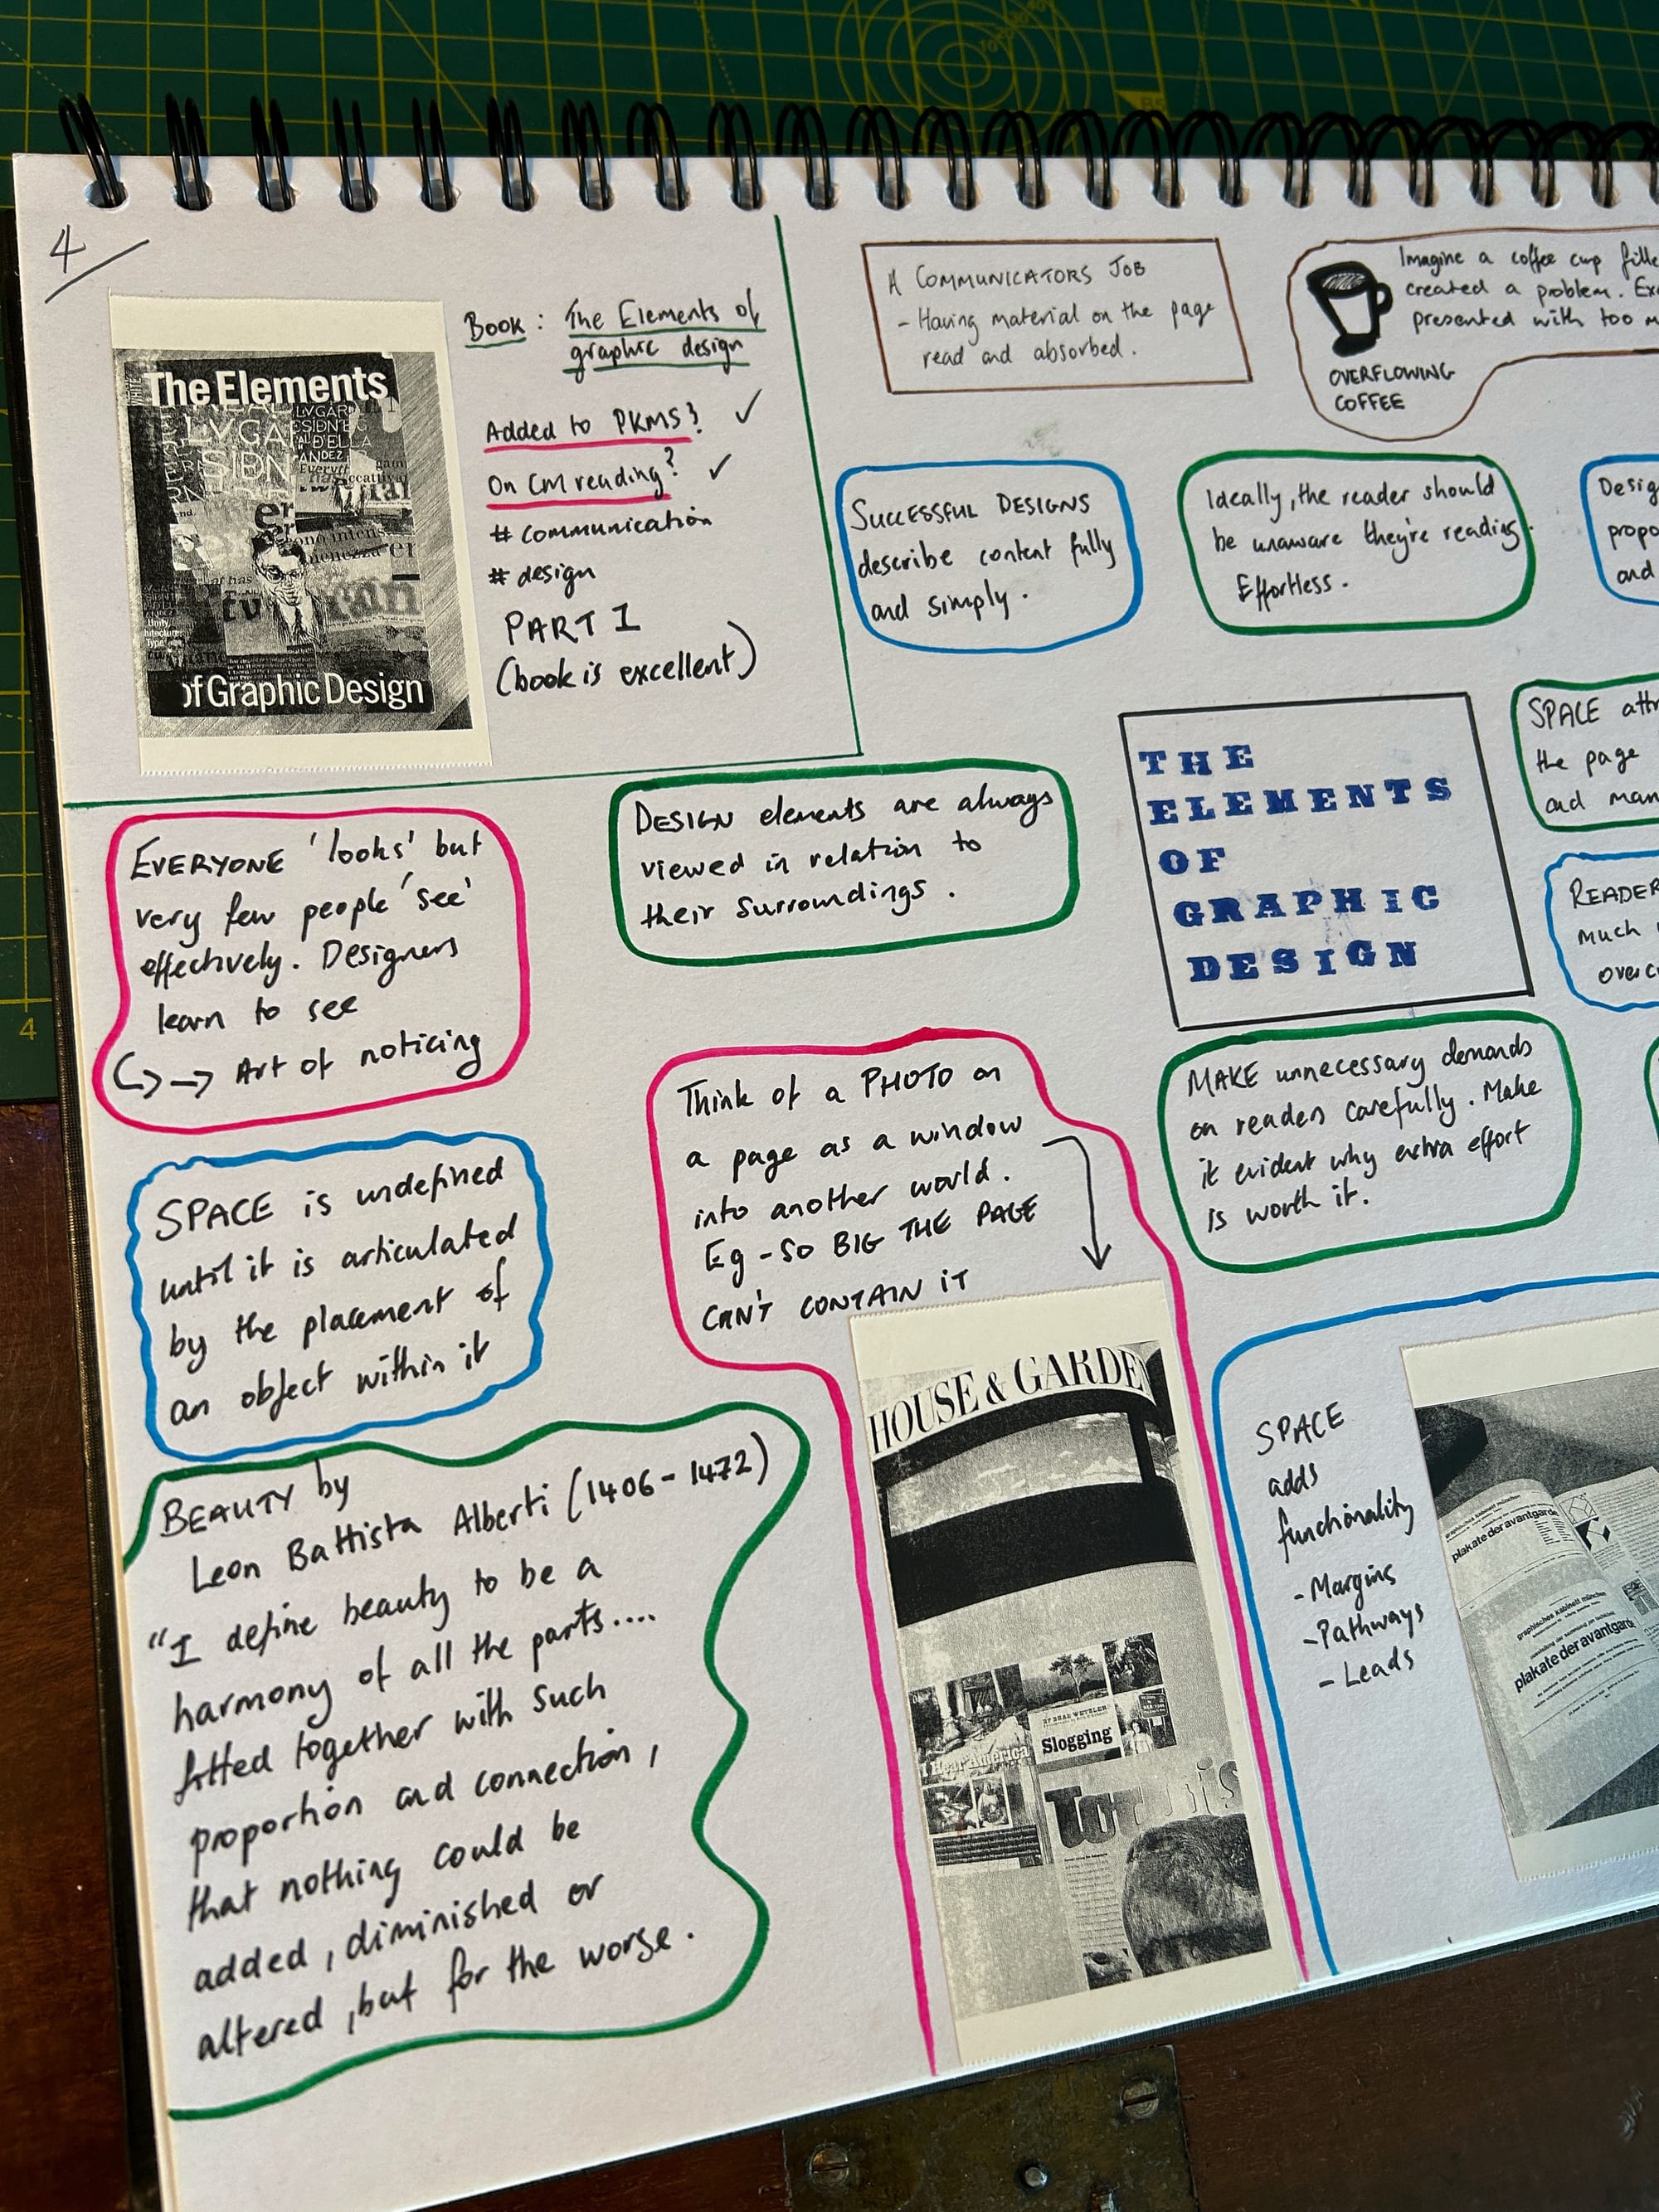 4
The Elements
of Graphic Design
Book: The Elements of
graphic design
Added to PKMS? ✓
On CM reading? ✓
# communication
# design
PART 1
(book is excellent)
A COMMUNICATORS JOB
- Having material on the page
read and absorbed.
Imagine a coffee cup fille
created a problem. Ex
presented with too m
OVERFLOWING
COFFEE
SUCCESSFUL DESIGNS
describe content fully
and simply.
Ideally, the reader should
be unaware they're reading.
Effortless.
Desig
propo
and
EVERYONE 'looks' but
very few people 'see'
effectively. Designers
learn to see
→ Art of noticing
DESIGN elements are always
viewed in relation to
their surroundings.
THE
ELEMENTS
OF
GRAPHIC
DESIGN
SPACE attr
the page
and man
READER
much
overc
SPACE is undefined
until it is articulated
by the placement of
an object within it
Think of a PHOTO on
a page as a window
into another world.
Eg - SO BIG THE PAGE
CAN'T CONTAIN IT
MAKE unnecessary demands
on readers carefully. Make
it evident why extra effort
is worth it.
BEAUTY by
Leon Battista Alberti (1406-1472)
"I define beauty to be a
harmony of all the parts....
fitted together with such
proportion and connection,
that nothing could be
added, diminished or
altered, but for the worse.
HOUSE & GARDEN
BY BRAD WETZLER
Slogging
I Hear America
SPACE
adds
functionality
- Margins
- Pathways
- Leads
graphisches kabinett münchen
plakate der avantgarde
graphisches kabinett münchen
plakate der avantgard